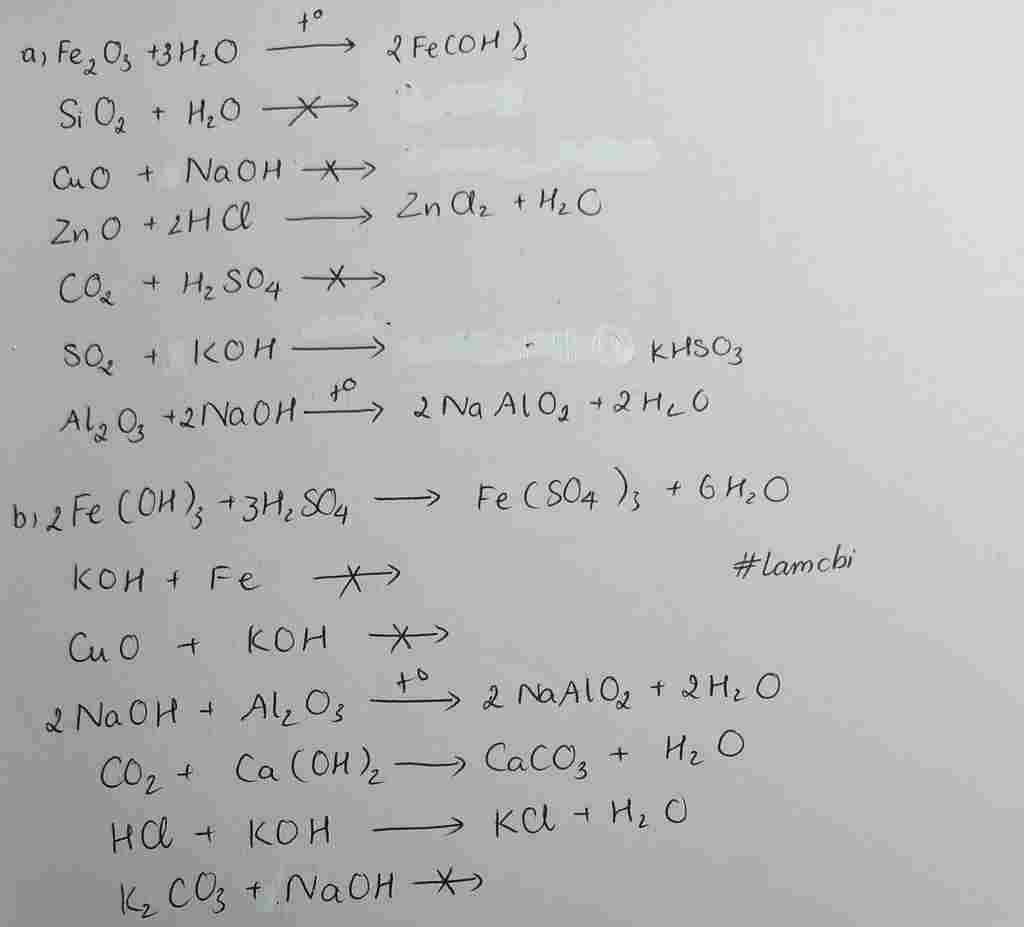 a) Fe₂O₃ +3H₂O —t°→ 2Fe(OH)₃
SiO₂ + H₂O —X→
CuO + NaOH —X→
ZnO + 2HCl ⟶ ZnCl₂ + H₂O
CO₂ + H₂SO₄ —X→
SO₂ + KOH ⟶ KHSO₃
Al₂O₃ +2NaOH —t°→ 2NaAlO₂ + 2H₂O
b) 2Fe(OH)₃ +3H₂SO₄ ⟶ Fe(SO₄)₃ + 6H₂O
KOH + Fe —X→
#lamcbi
CuO + KOH —X→
2NaOH + Al₂O₃ —t°→ 2NaAlO₂ + 2H₂O
CO₂ + Ca(OH)₂ ⟶ CaCO₃ + H₂O
HCl + KOH ⟶ KCl + H₂O
K₂CO₃ + NaOH —X→